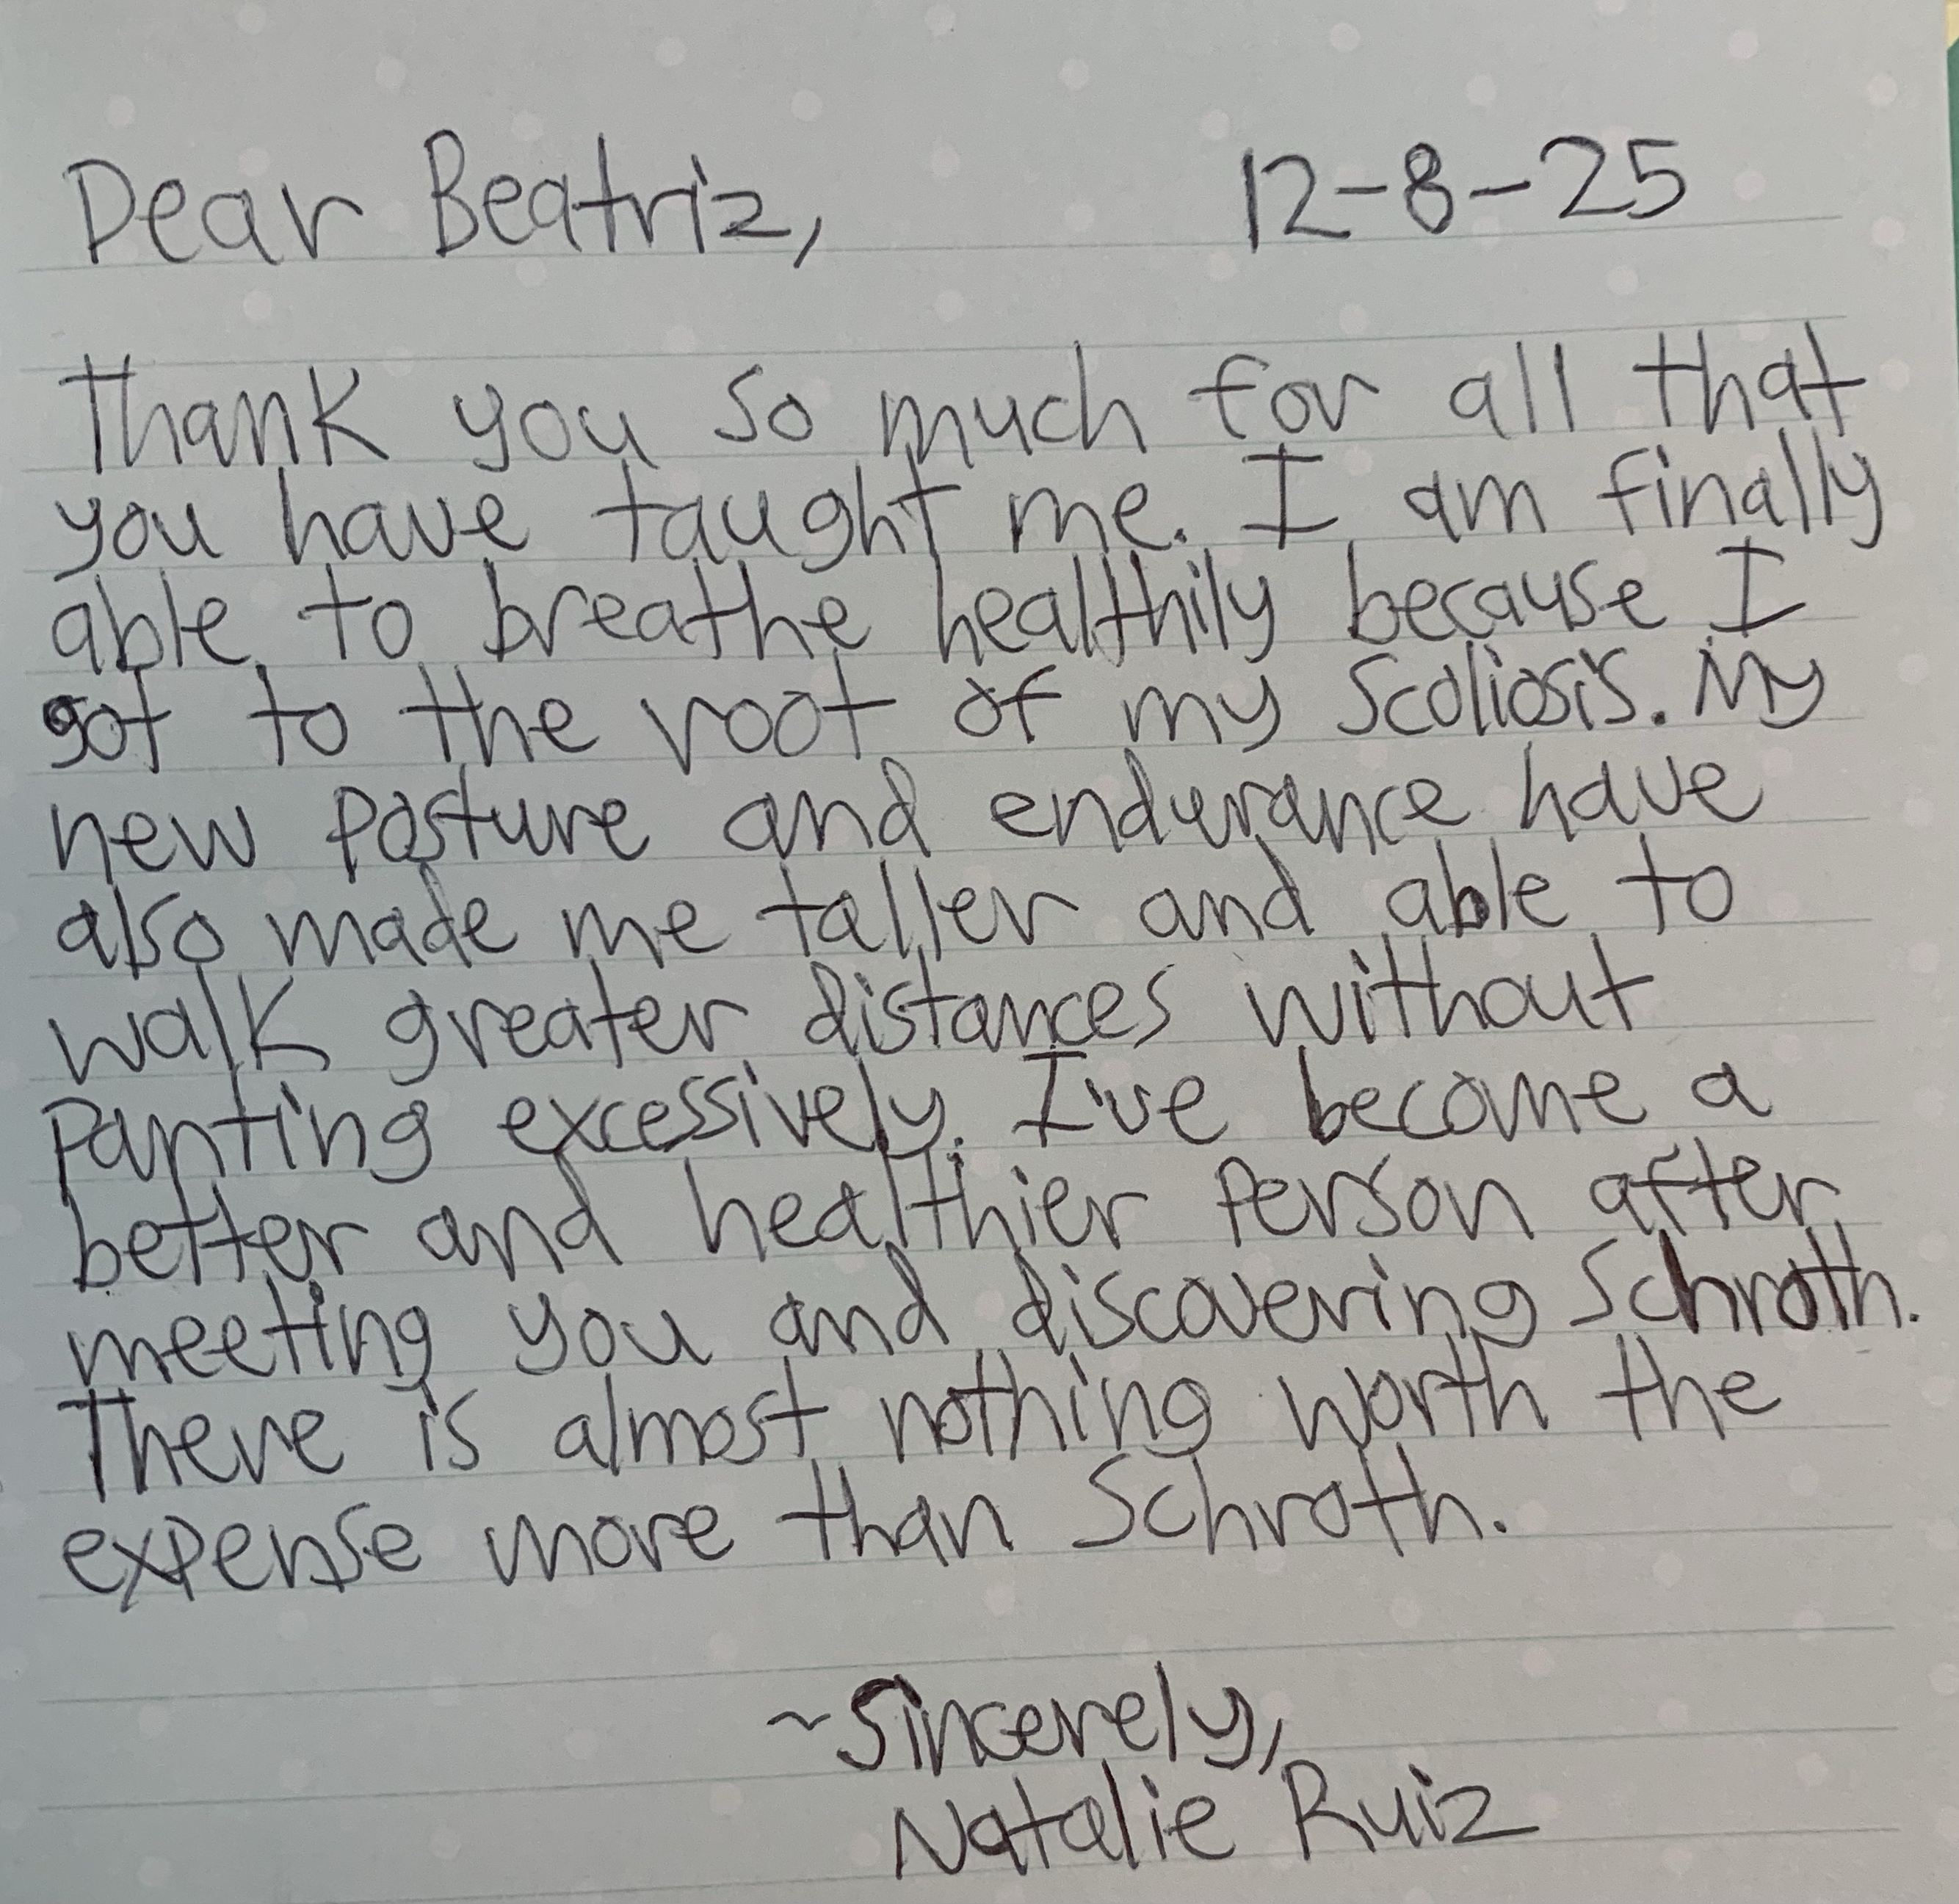 Dear Beatriz, 12-8-25
Thank you so much for all that
you have taught me. I am finally
able to breathe healthily because I
got to the root of my Scoliosis. My
new posture and endurance have
also made me taller and able to
walk greater distances without
panting excessively. I've become a
better and healthier person after
meeting you and discovering Schroth.
There is almost nothing worth the
expense more than Schroth.
~Sincerely,
Natalie Ruiz